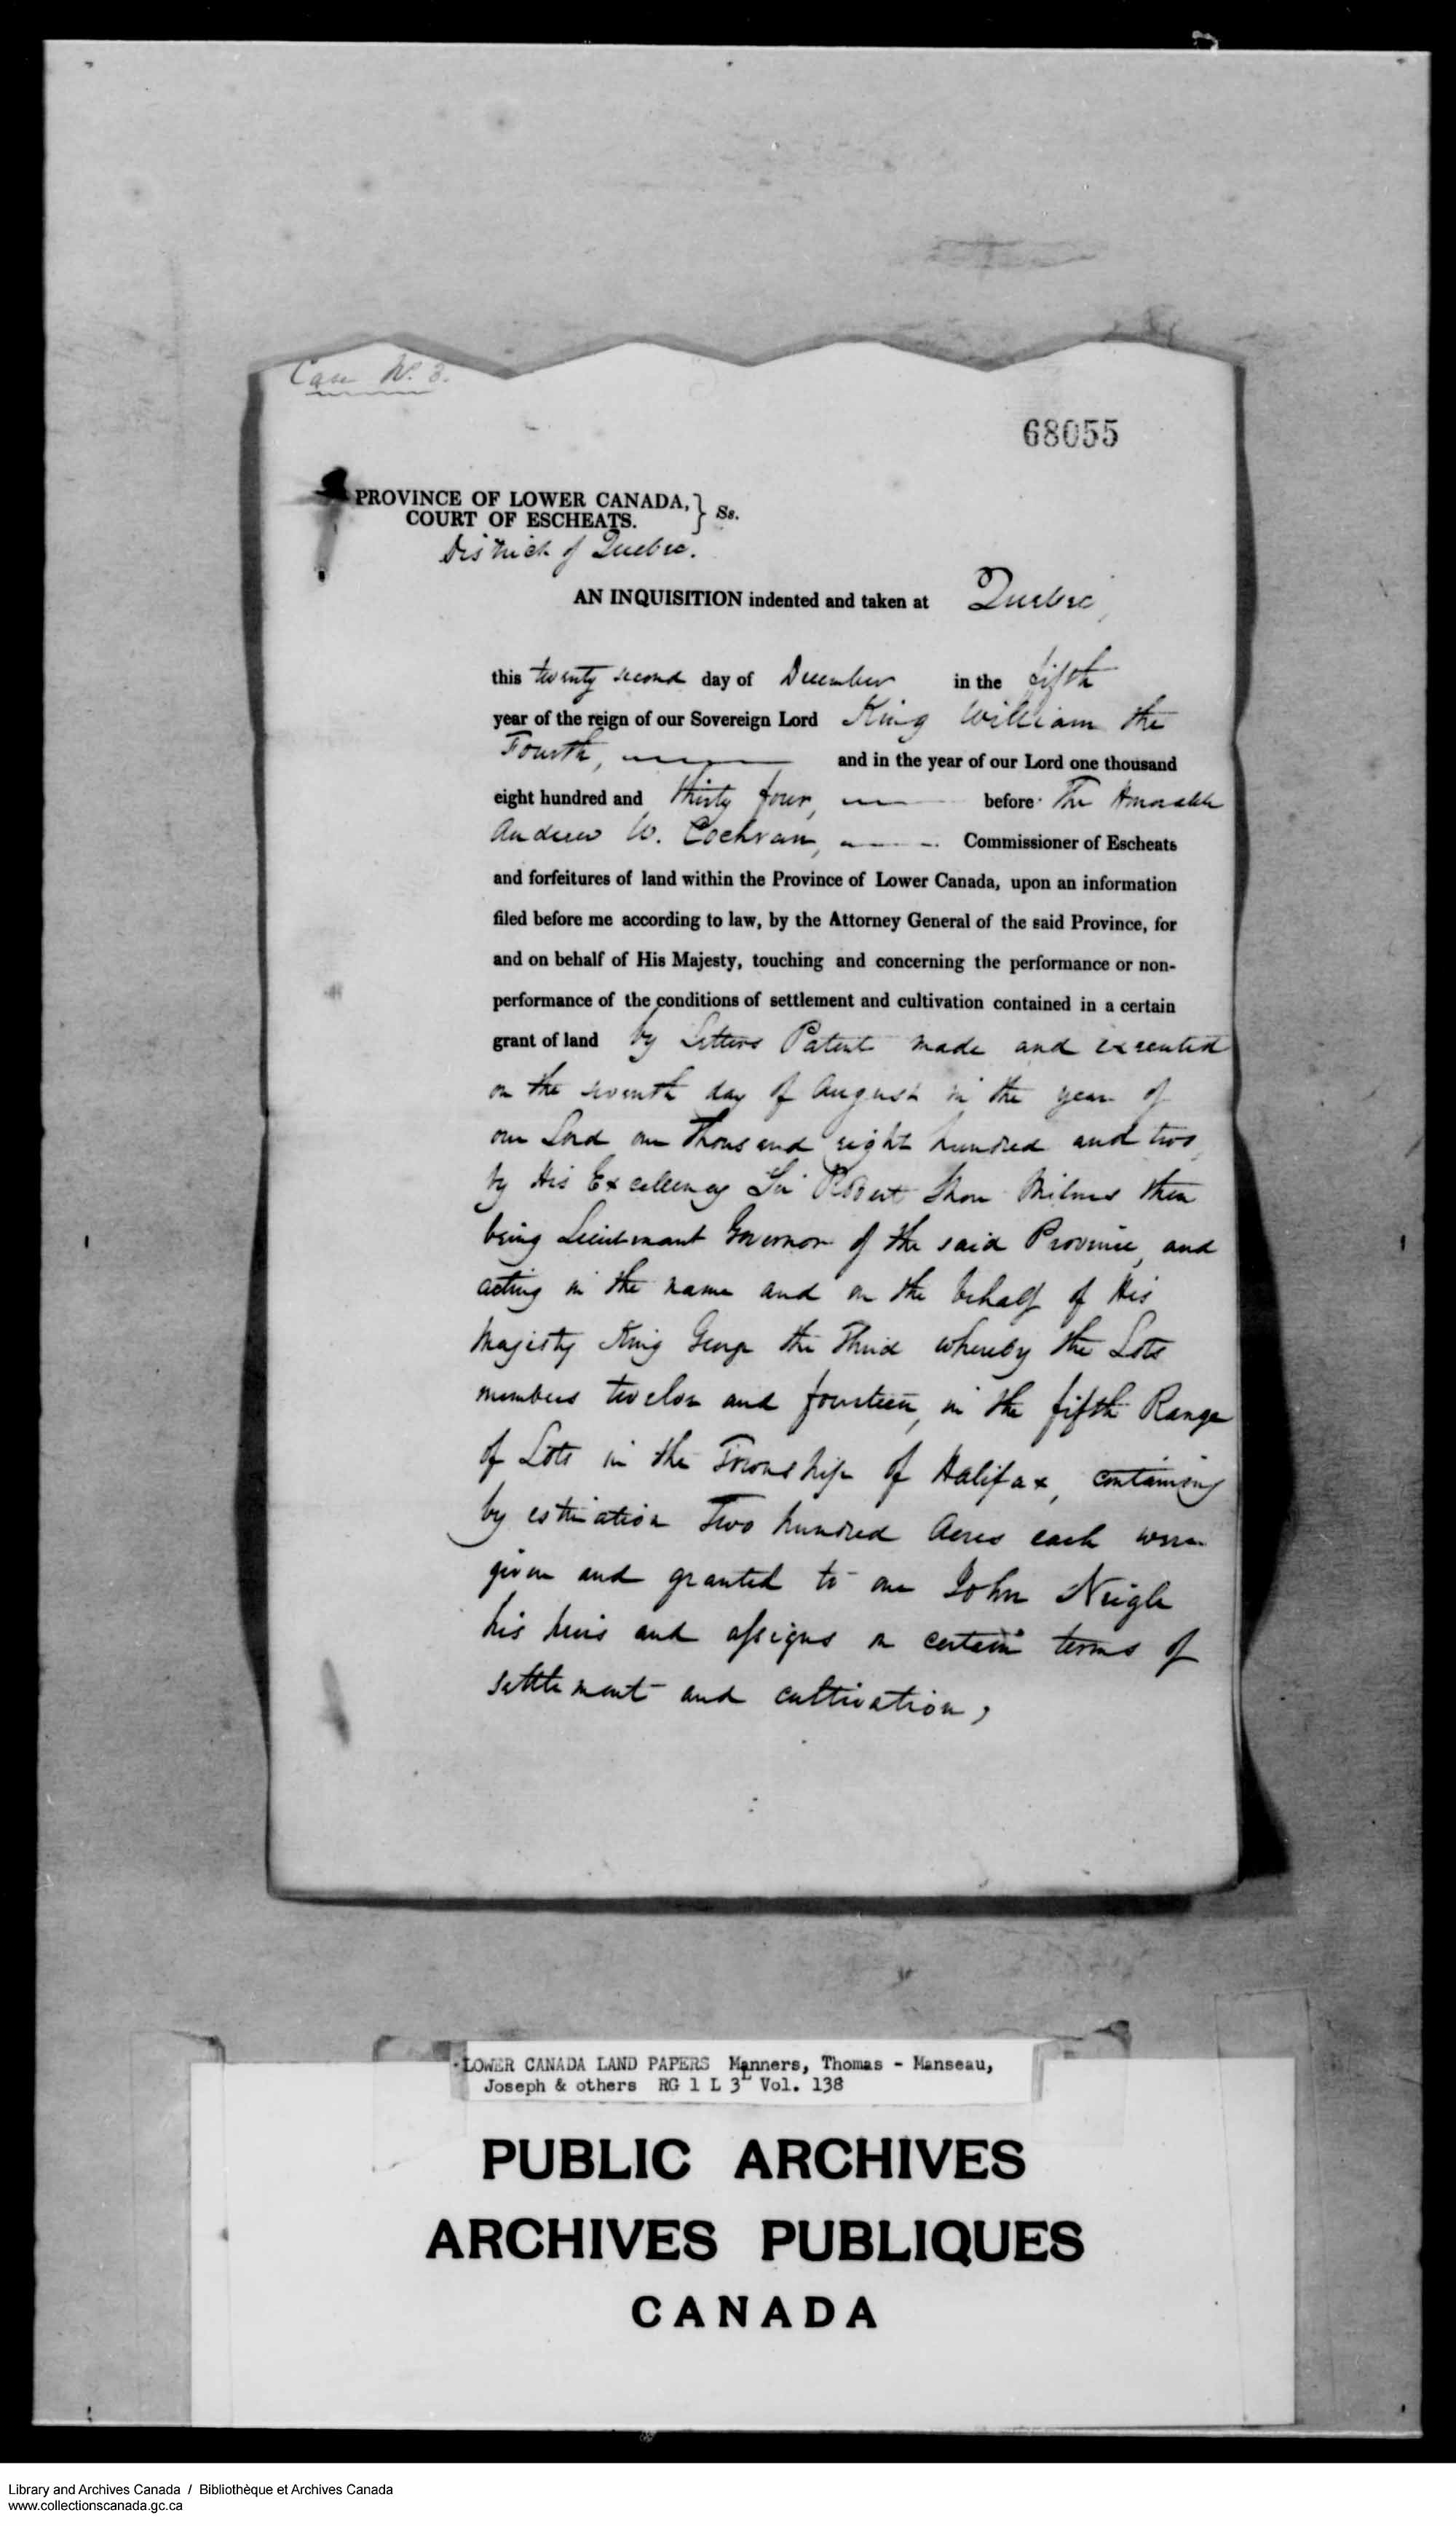 Case No. 3.
68055
PROVINCE OF LOWER CANADA,
COURT OF ESCHEATS. } Ss.
District of Quebec.
AN INQUISITION indented and taken at Quebec,
this twenty second day of December in the fifth
year of the reign of our Sovereign Lord King William the
Fourth, and in the year of our Lord one thousand
eight hundred and thirty four, before The Honorable
Andrew W. Cochran, Commissioner of Escheats
and forfeitures of land within the Province of Lower Canada, upon an information
filed before me according to law, by the Attorney General of the said Province, for
and on behalf of His Majesty, touching and concerning the performance or non-
performance of the conditions of settlement and cultivation contained in a certain
grant of land by Letters Patent made and executed
on the seventh day of August in the year of
our Lord one thousand eight hundred and two,
by His Excellency Sir Robert Shore Milnes then
being Lieutenant Governor of the said Province, and
acting in the name and on the behalf of His
Majesty King George the Third whereby the Lots
numbers twelve and fourteen, in the fifth Range
of Lots in the Township of Halifax, containing
by estimation Two hundred Acres each were
given and granted to one John Neigle
his heirs and assigns on certain terms of
settlement and cultivation,
LOWER CANADA LAND PAPERS Manners, Thomas - Manseau,
Joseph & others RG 1 L 3L Vol. 138
PUBLIC ARCHIVES
ARCHIVES PUBLIQUES
CANADA
Library and Archives Canada / Bibliothèque et Archives Canada
www.collectionscanada.gc.ca